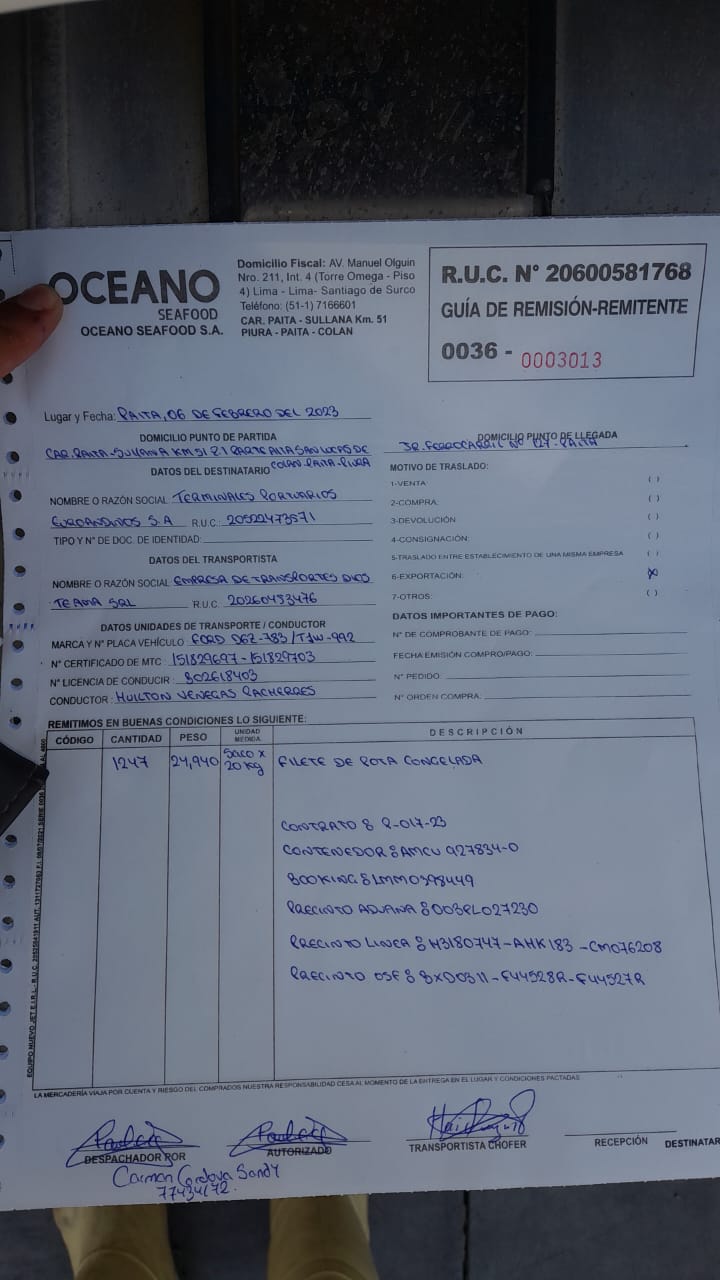 OCEANO
SEAFOOD
OCEANO SEAFOOD S.A.
Domicilio Fiscal: AV. Manuel Olguin
Nro. 211, Int. 4 (Torre Omega - Piso
4) Lima - Lima- Santiago de Surco
Teléfono: (51-1) 7166601
CAR. PAITA - SULLANA Km. 51
PIURA - PAITA - COLAN
R.U.C. N° 20600581768
GUÍA DE REMISIÓN-REMITENTE
0036 - 0003013
Lugar y Fecha: PAITA, 06 DE FEBRERO DEL 2023
DOMICILIO PUNTO DE PARTIDA
CAR. PAITA-SULLANA KM 51 Z.I PARTE ALTA SAN LUCAS DE
COLAN-PAITA-PIURA
DOMICILIO PUNTO DE LLEGADA
JR. FERROCARRIL N° 127-PAITA
DATOS DEL DESTINATARIO
NOMBRE O RAZÓN SOCIAL TERMINALES PORTUARIOS
EUROANDINOS S.A R.U.C.: 20522473571
TIPO Y N° DE DOC. DE IDENTIDAD:
DATOS DEL TRANSPORTISTA
NOMBRE O RAZÓN SOCIAL EMPRESA DE TRANSPORTES DIOS
TE AMA SRL R.U.C. 20260453476
DATOS UNIDADES DE TRANSPORTE / CONDUCTOR
MARCA Y N° PLACA VEHÍCULO: FORD D6Z-783/T1W-992
N° CERTIFICADO DE MTC: 151829697-151829703
N° LICENCIA DE CONDUCIR: B02618403
CONDUCTOR: HUILTON VENEGAS PACHERRES
MOTIVO DE TRASLADO:
1-VENTA ( )
2-COMPRA: ( )
3-DEVOLUCIÓN ( )
4-CONSIGNACIÓN: ( )
5-TRASLADO ENTRE ESTABLECIMIENTO DE UNA MISMA EMPRESA ( )
6-EXPORTACIÓN: (X)
7-OTROS: ( )
DATOS IMPORTANTES DE PAGO:
N° DE COMPROBANTE DE PAGO:
FECHA EMISIÓN COMPRO/PAGO:
N° PEDIDO:
N° ORDEN COMPRA:
REMITIMOS EN BUENAS CONDICIONES LO SIGUIENTE:
CÓDIGO CANTIDAD PESO UNIDAD MEDIDA DESCRIPCIÓN
1247 24,940 SACO X 20 Kg FILETE DE POTA CONGELADA
CONTRATO: P-017-23
CONTENEDOR: AMCU 927834-0
BOOKING: LMM0398449
PRECINTO ADUANA: 003PL027230
PRECINTO LINEA: H3180747-AHK183-CM076208
PRECINTO OSF: BXD0311-F44528R-F44527R
LA MERCADERÍA VIAJA POR CUENTA Y RIESGO DEL COMPRADOS NUESTRA RESPONSABILIDAD CESA AL MOMENTO DE LA ENTREGA EN EL LUGAR Y CONDICIONES PACTADAS
DESPACHADOR POR
AUTORIZADO
TRANSPORTISTA CHOFER
RECEPCIÓN DESTINATAR
Carmen Cordova Sandy
77434172.